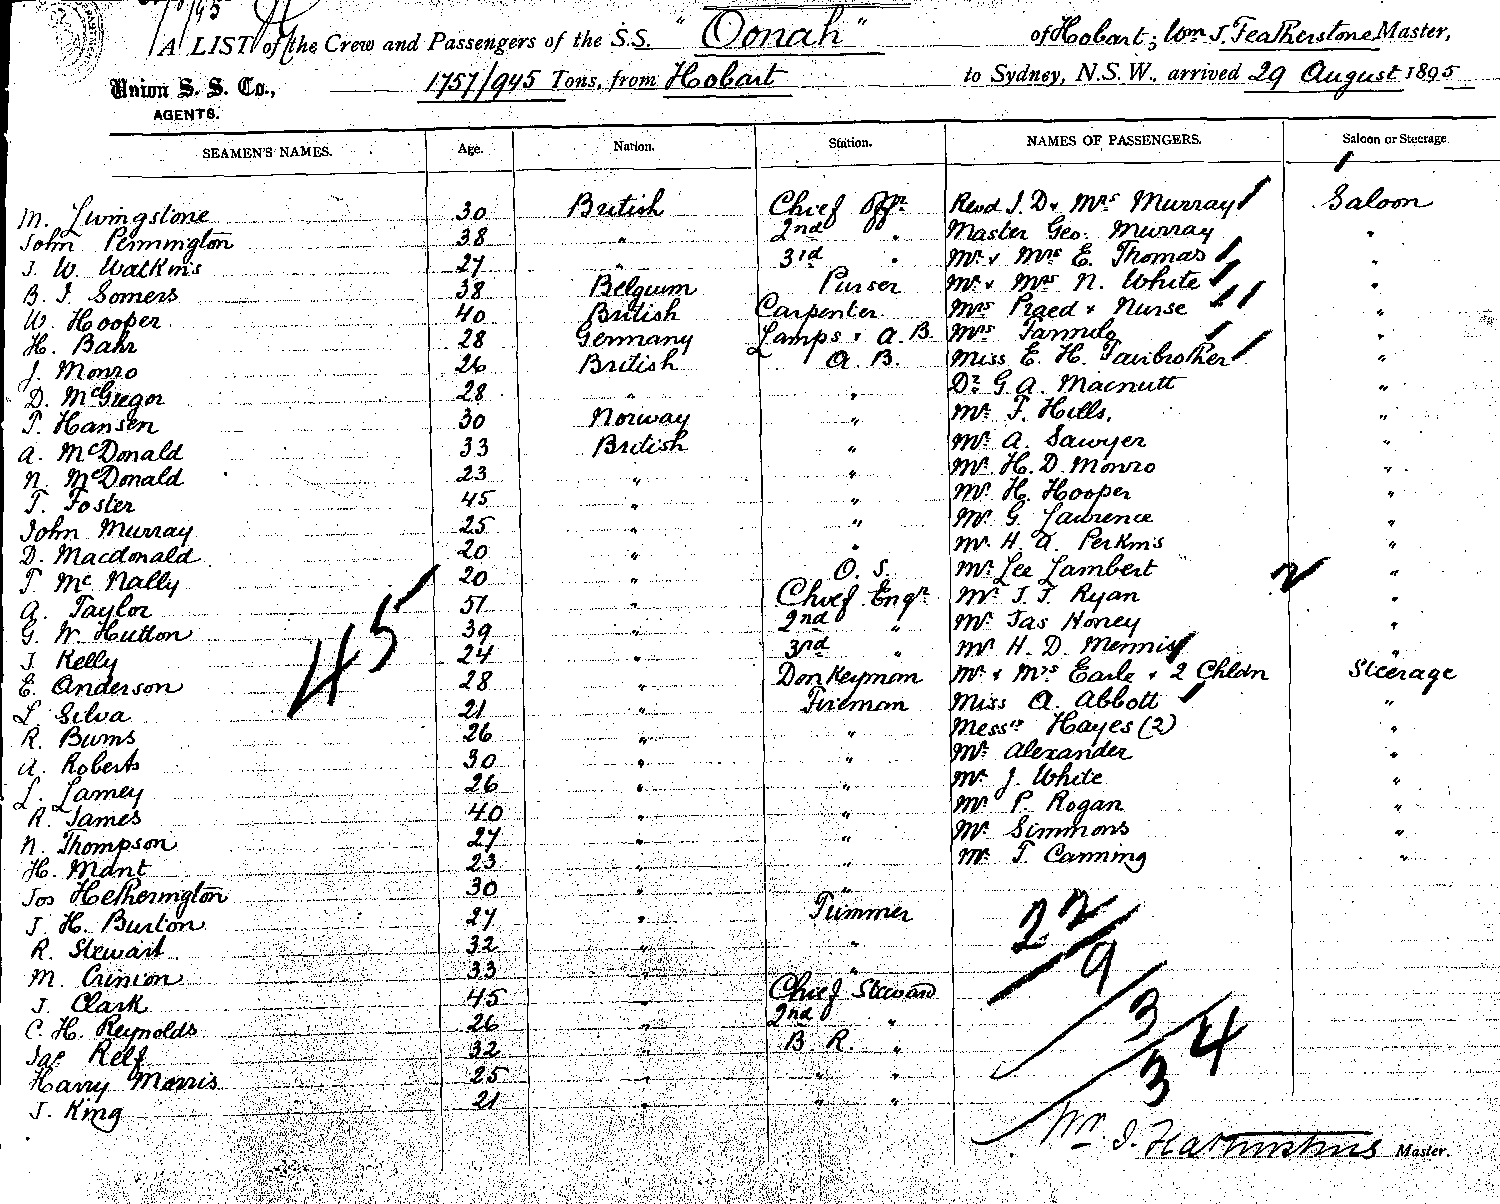 /95
A LIST of the Crew and Passengers of the S.S. "Oonah" of Hobart; Wm J. Featherstone Master,
Union S. S. Co., 1757/945 Tons, from Hobart to Sydney, N.S.W., arrived 29 August 1895
AGENTS.
SEAMEN'S NAMES. Age. Nation. Station. NAMES OF PASSENGERS. Saloon or Steerage
M. Livingstone 30 British Chief Offr. Revd J. D & Mrs Murray Saloon
John Pennington 38 " 2nd " Master Geo. Murray "
J. W. Watkins 27 " 3rd " Mr & Mrs E. Thomas "
B. J. Somers 38 Belgium Purser Mr & Mrs N. White "
W. Hooper 40 British Carpenter Mrs Praed & Nurse "
H. Bahr 28 Germany Lamps & A.B. Mrs "
J. Monro 26 British A. B. Miss E. H. Fairbrother "
D. McGregor 28 " " Dr. G. A. Macnutt "
P. Hansen 30 Norway " Mr. F. Hills. "
A. McDonald 33 British " Mr. A. Sawyer "
N. McDonald 23 " " Mr. H. D. Monro "
T. Foster 45 " " Mr. H. Hooper "
John Murray 25 " " Mr. G. Lawrence "
D. Macdonald 20 " " Mr. H. A. Perkins "
T. McNally 20 " O. S. Mr. Lee Lambert "
A. Taylor 51 " Chief Engr. Mr. J. J. Ryan "
G. W. Hutton 39 " 2nd " Mr. Jas Honey "
J. Kelly 24 " 3rd " Mr. H. D. Mennis "
E. Anderson 28 " Donkeyman Mr & Mrs Earle & 2 Chldn Steerage
L. Silva 21 " Fireman Miss A. Abbott "
R. Burns 26 " " Messrs Hayes (2) "
A. Roberts 30 " " Mr. Alexander "
L. Lamey 26 " " Mr. J. White "
R. James 40 " " Mr. P. Rogan "
N. Thompson 27 " " Mr. Simmons "
H. Mant 23 " " Mr. T. Canning "
Jos Hetherington 30 " "
J. H. Burton 27 " Trimmer
R. Stewart 32 " "
M. Crinion 33 " "
J. Clark 45 " Chief Steward
C. H. Reynolds 26 " 2nd "
Jas Relf 32 " B R. "
Harry Morris 25 " " "
J. King 21 " " "
45
2
22
9
3
34
Wm. J. Featherstone Master.